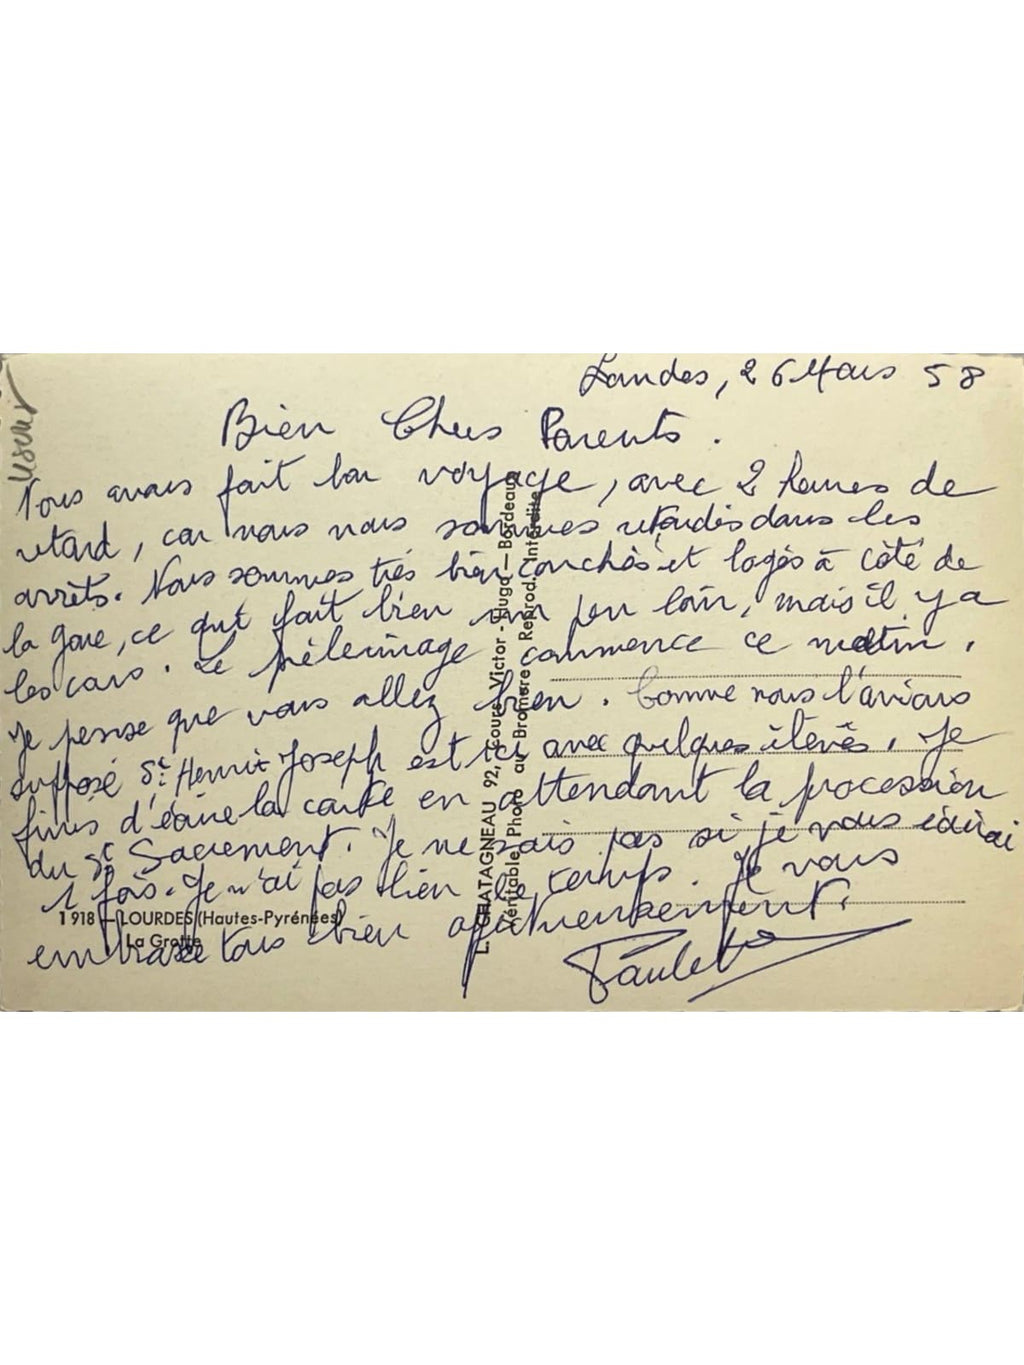 Landes, 26 Mars 58
Bien Chers Parents.
Nous avons fait bon voyage, avec 2 heures de
retard, car nous nous sommes retardés dans les
arrêts. Nous sommes très bien couchés et logés à côté de
la gare, ce qui fait bien un peu loin, mais il y a
les cars. Le pèlerinage commence ce matin.
Je pense que vous allez bien. Comme nous l'avions
supposé St Henri Joseph est ici avec quelques élèves. Je
finis d'écrire la carte en attendant la procession
du St Sacrement. Je ne sais pas si je vous écrirai
1 fois. Je n'ai pas bien le temps. Je vous
embrasse tous bien affectueusement.
Paulette
1918 — LOURDES (Hautes-Pyrénées)
La Grotte
L. CHATAGNEAU 92, Cours Victor-Hugo — Bordeaux
Véritable Photo au Bromure Reprod. Interdite